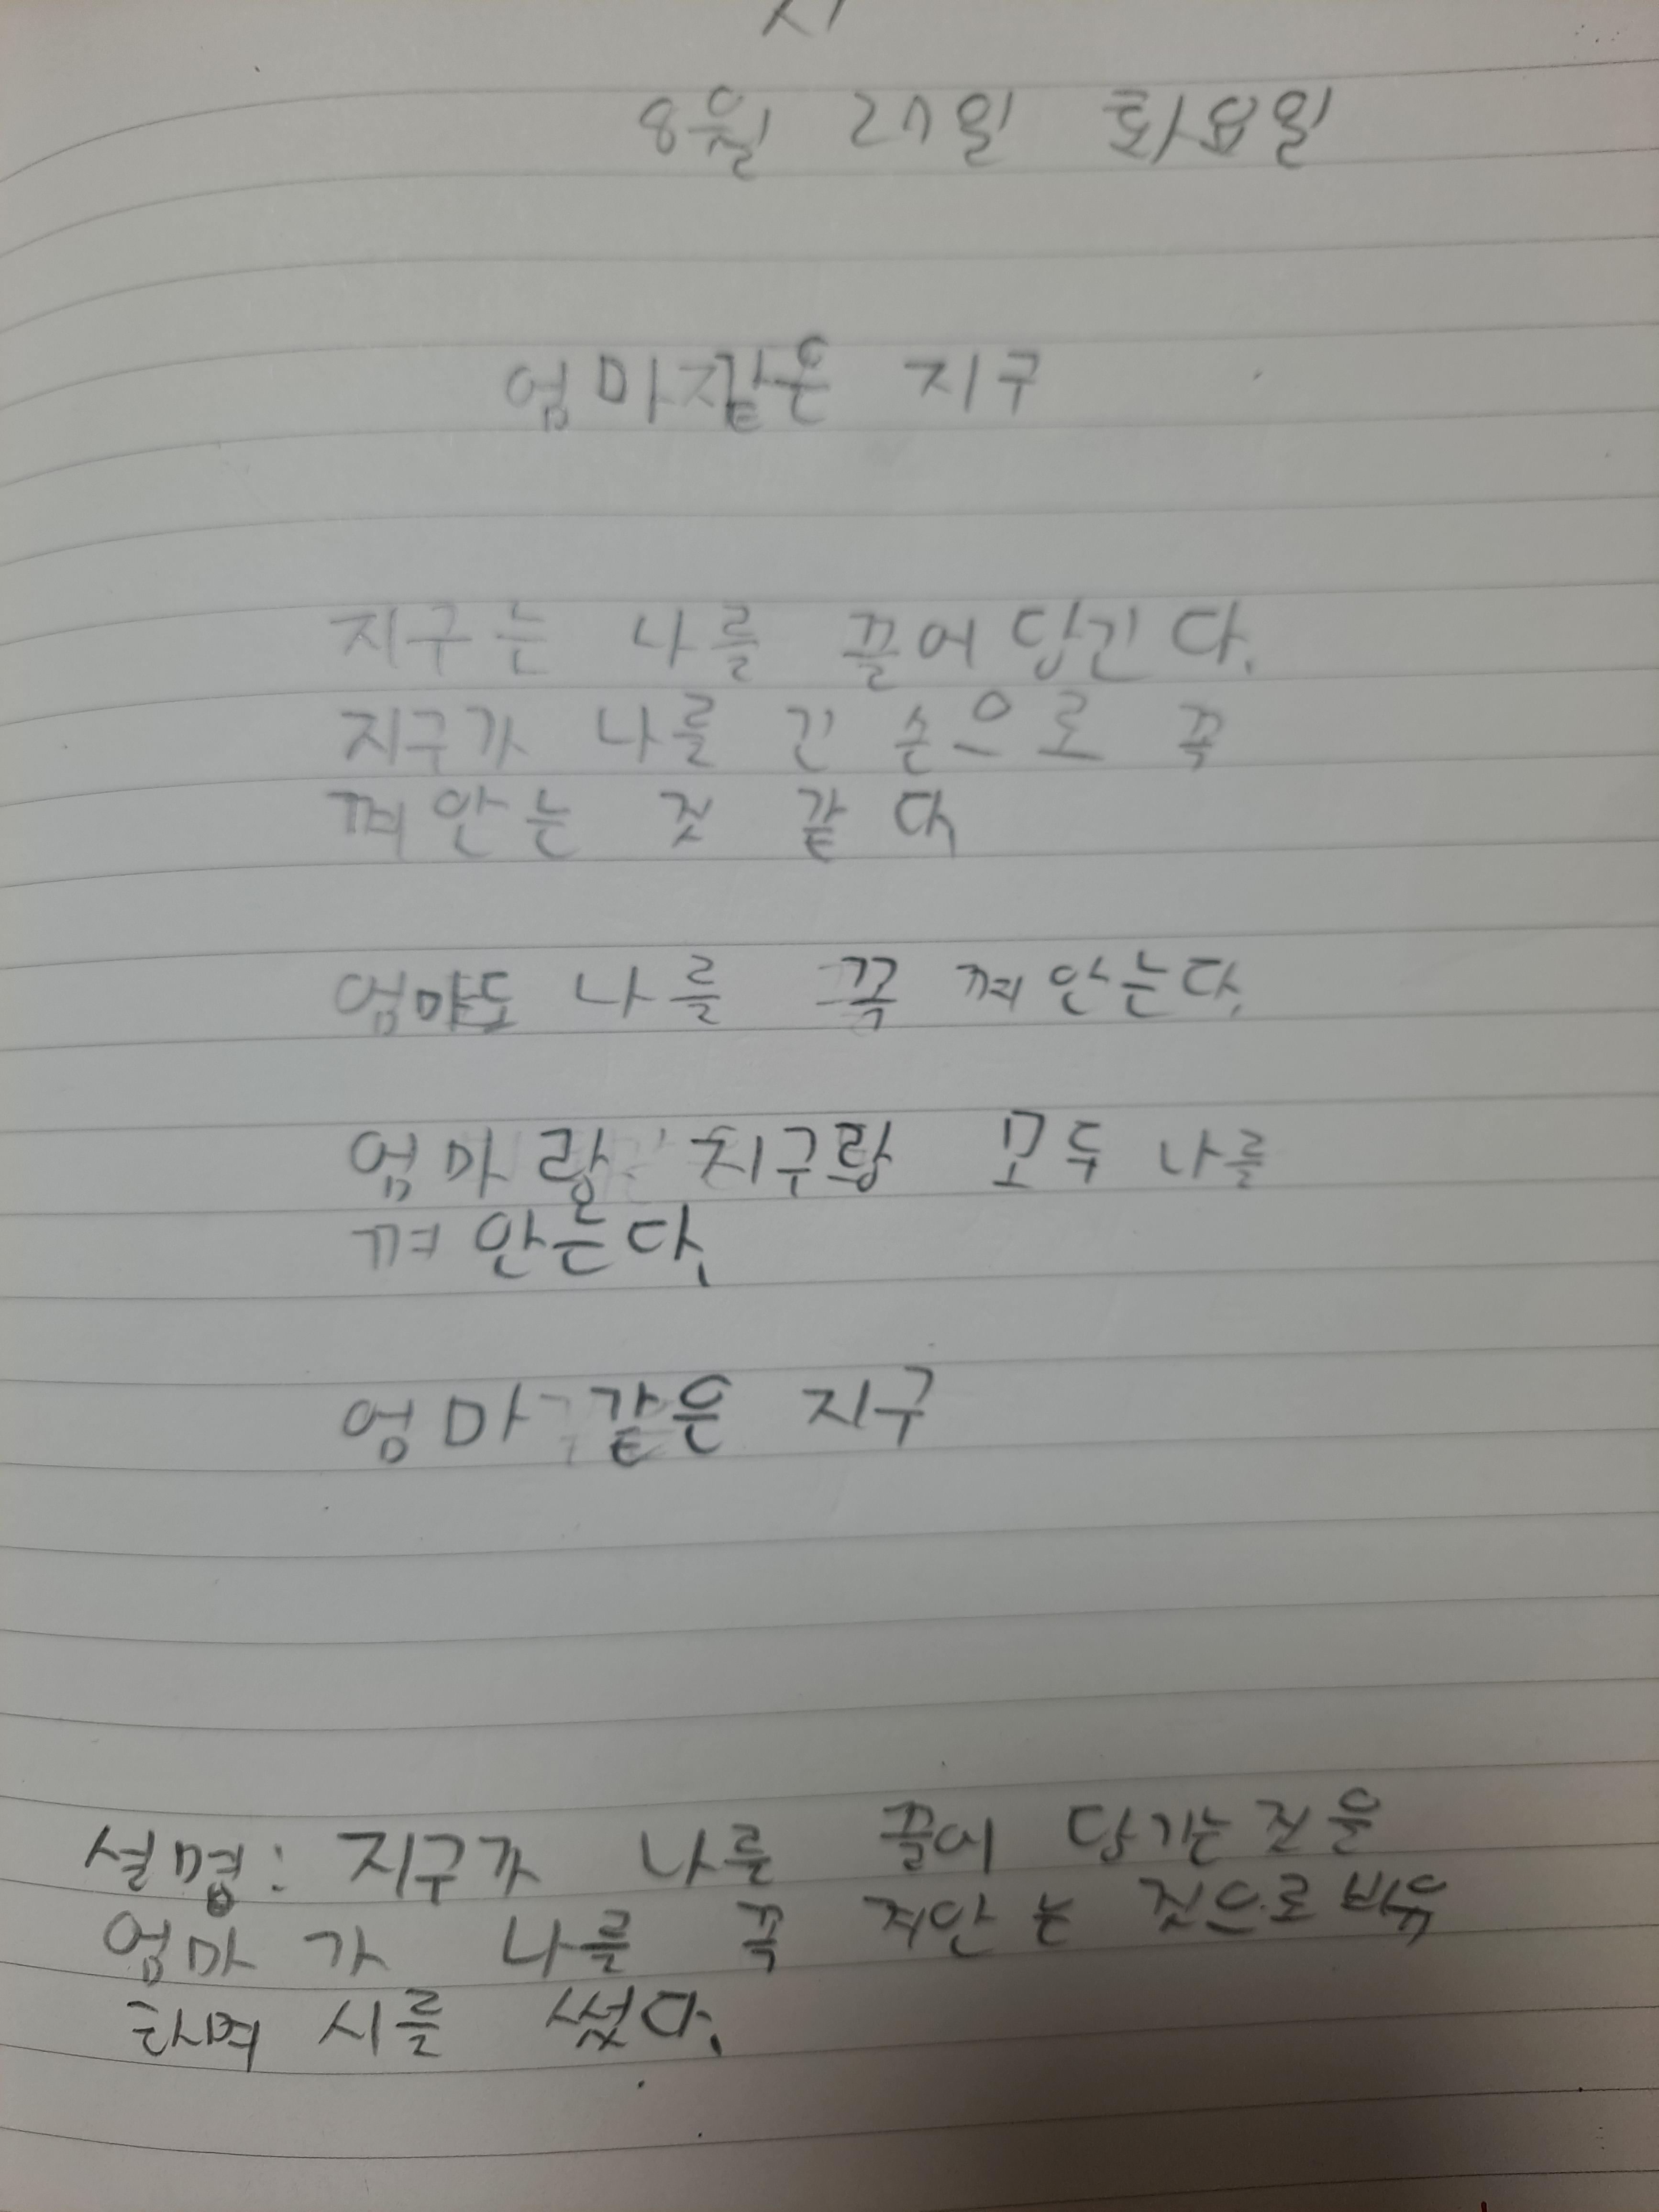 시
8월 27일 화요일
엄마같은 지구
지구는 나를 끌어당긴다.
지구가 나를 긴 손으로 꼭
껴안는 것 같다.
엄마도 나를 꼭 껴안는다.
엄마랑 지구랑 모두 나를
껴안는다.
엄마 같은 지구
설명: 지구가 나를 끌어 당기는것을
엄마가 나를 꼭 껴안는 것으로 비유
하며 시를 썼다.